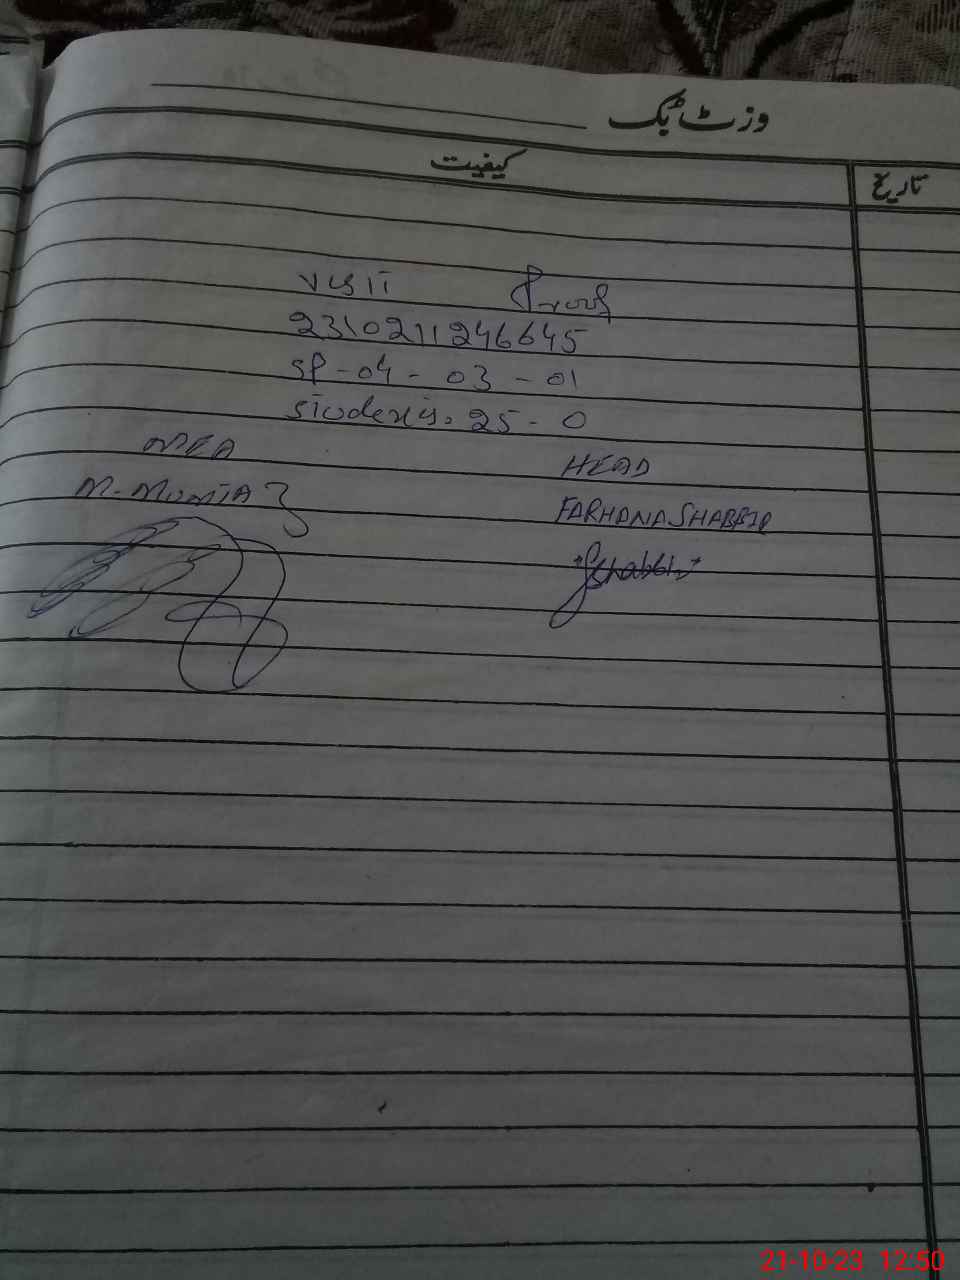 وزٹ بک
کیفیت
تاریخ
Visit Proof
2310211246645
SP-04-03-01
Students: 25-0
MEA
HEAD
M-MumTAZ
FARHANA SHABBIR
Fshabbir
21-10-23 12:50